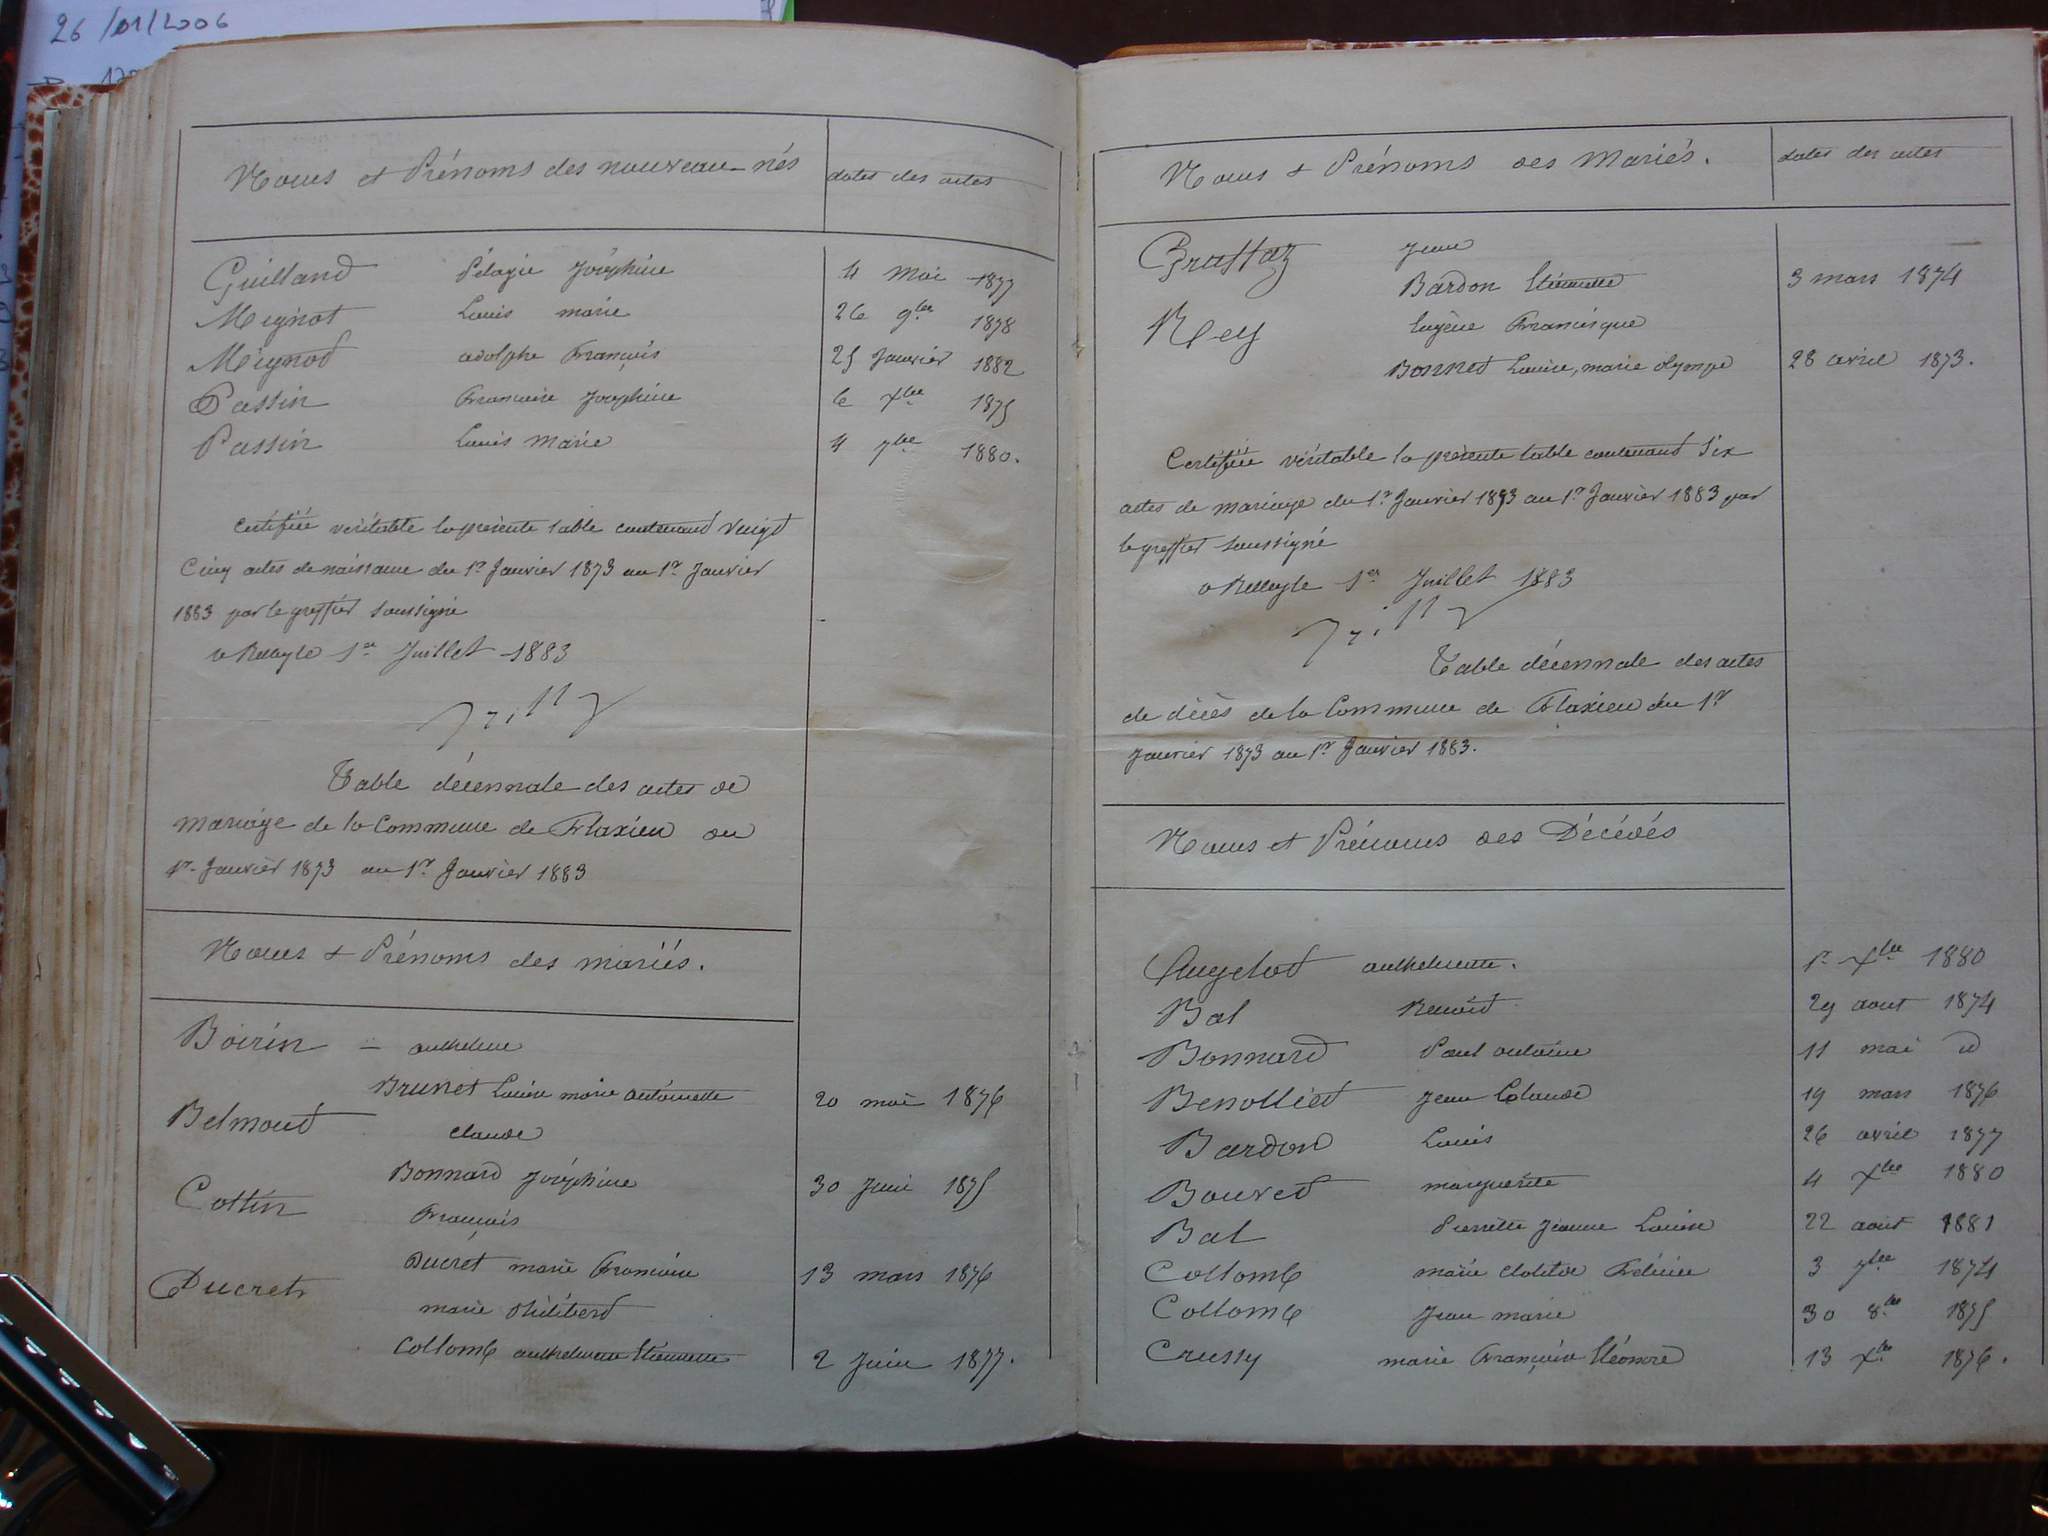 26/01/2006
Noms et Prénoms des nouveau-nés dates des actes
Guilland Pélagie Joséphine 4 Mai 1877
Mignot Louis marie 26 9bre 1878
Mignod adolphe François 25 Janvier 1882
Passin Françoise Joséphine 6 Xbre 1875
Passin Louis Marie 4 7bre 1880.
Certifiée véritable la présente table contenand Vingt
Cinq actes de naissance du 1er Janvier 1873 au 1er Janvier
1883 par le greffier soussigné
a Belley le 1er Juillet 1883
Table décennale des actes de
mariage de la Commune de Flaxieu du
1er Janvier 1873 au 1er Janvier 1883
Noms & Prénoms des mariés.
Boirin – anthelme
Brunet Louise marie antoinette 20 mai 1876
Belmont claude
Bonnard Joséphine 30 Juin 1875
Cottin François
Ducret marie Françoise 13 mars 1876
Ducret marie Philiberd
Collomb anthelmette Etiennette 2 Juin 1877.
Noms & Prénoms des Mariés. dates des actes
Jean
Bardon Etiennette 3 mars 1874
Rey Eugène Francisque
Bonned Louise, marie olympe 28 avril 1873.
Certifiée véritable la présente table contenand Six
actes de mariage du 1er Janvier 1873 au 1er Janvier 1883 par
le greffier soussigné
a Belley le 1er Juillet 1883
Table décennale des actes
de décès de la Commune de Flaxieu du 1er
Janvier 1873 au 1er Janvier 1883.
Noms et Prénoms des Décédés
Augelod anthelmette. 1er Xbre 1880
Bal Benoid 29 aout 1874
Bonnard Paul antoine 11 mai id
Benolliet Jean Claude 19 mars 1876
Bardon Louis 26 avril 1877
Bouvet marguerite 4 Xbre 1880
Bal Pierrette Jeanne Louise 22 août 1881
Collomb marie clotilde Félicie 3 7bre 1874
Collomb Jean marie 30 8bre 1875
Crussy marie Françoise Eléonore 13 Xbre 1876.